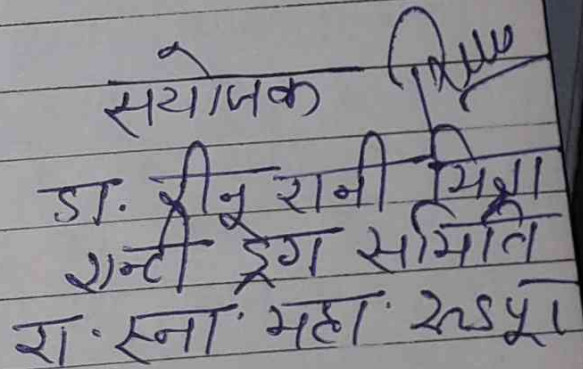 सयोजक
डा. रीनू रानी मिश्रा
एन्टी ड्रग समिति
रा. स्ना. महा. रुद्रपुर